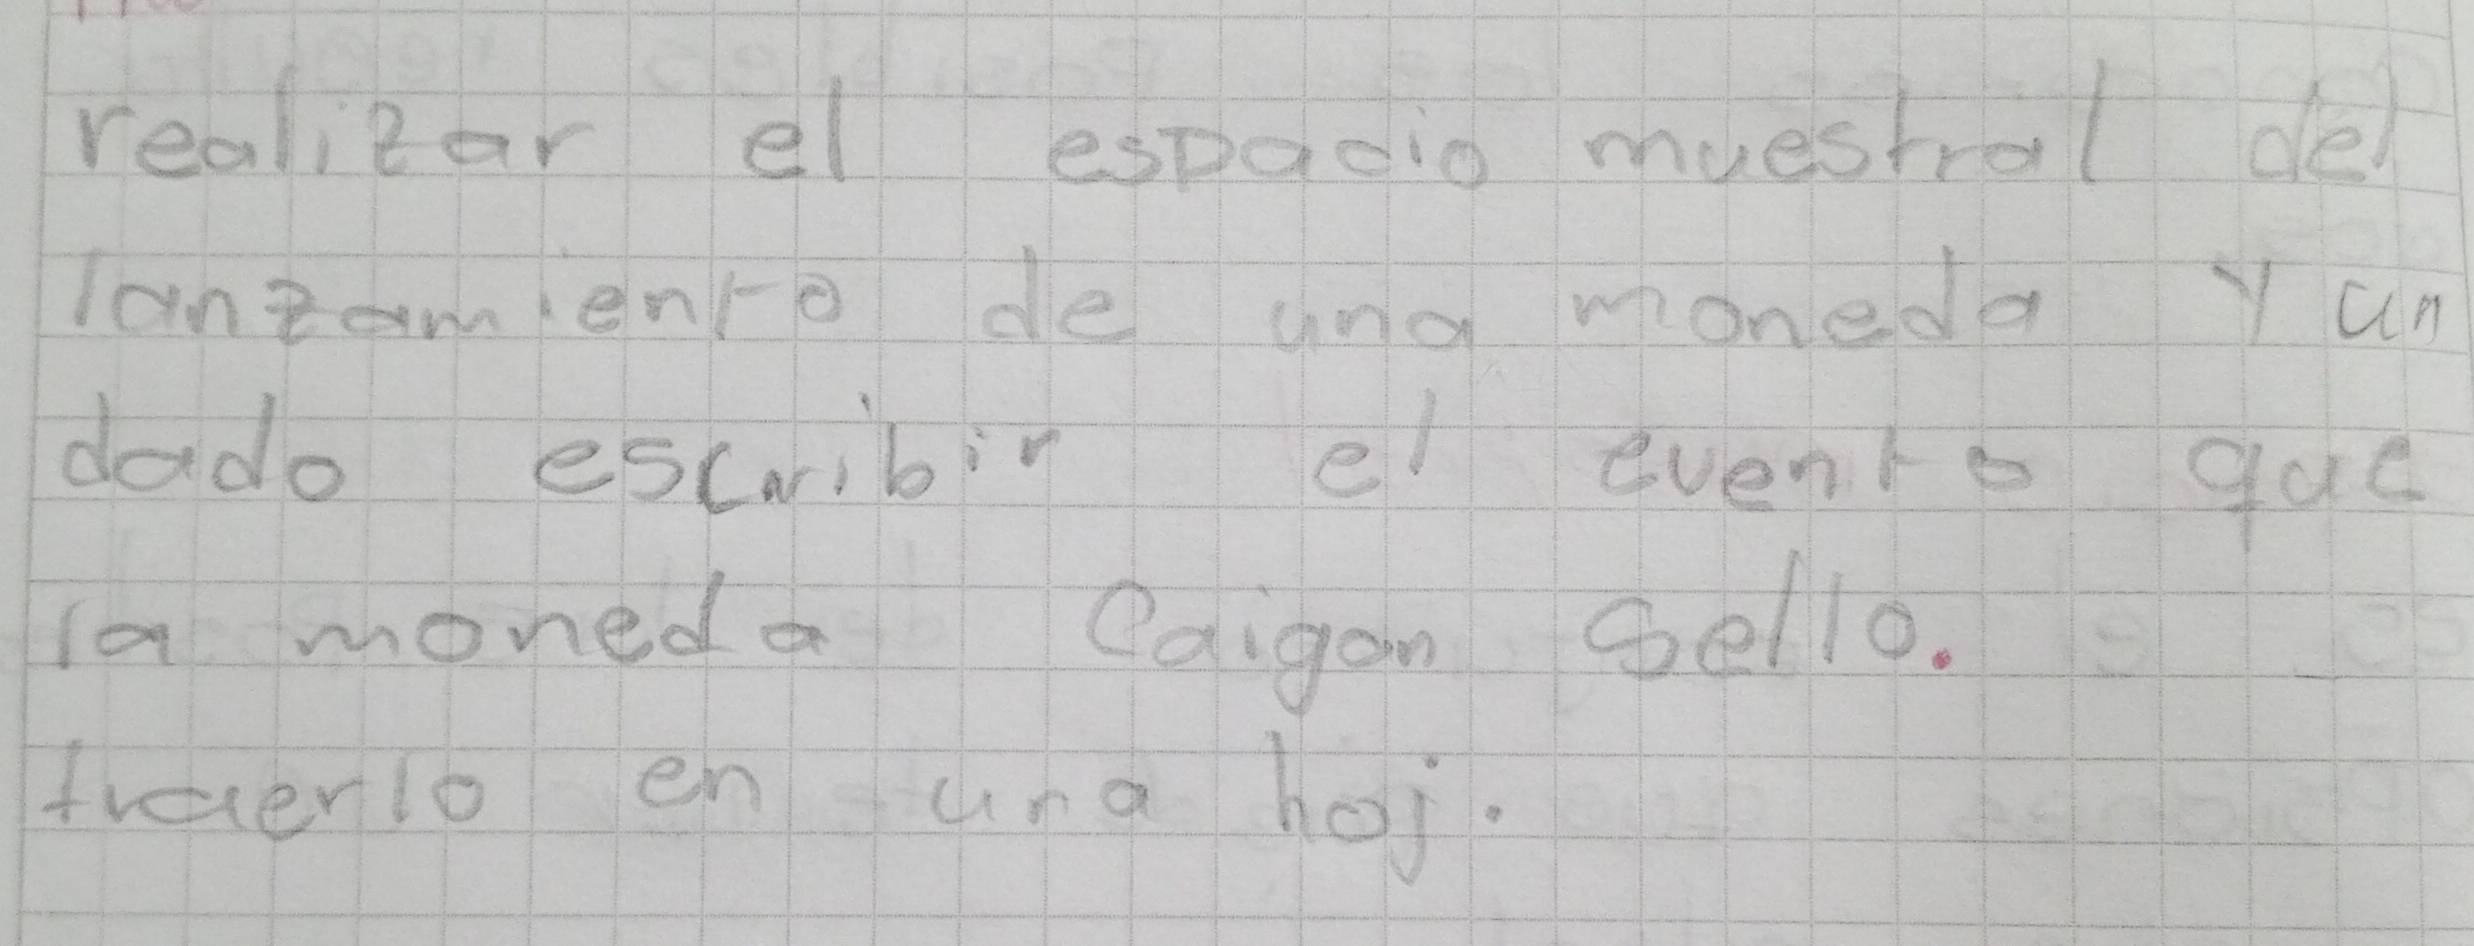 realizar el espacio muestral del
lanzamiento de una moneda y un
dado escribir el evento que
la moneda Caigan Sello.
traerlo en una hoj.